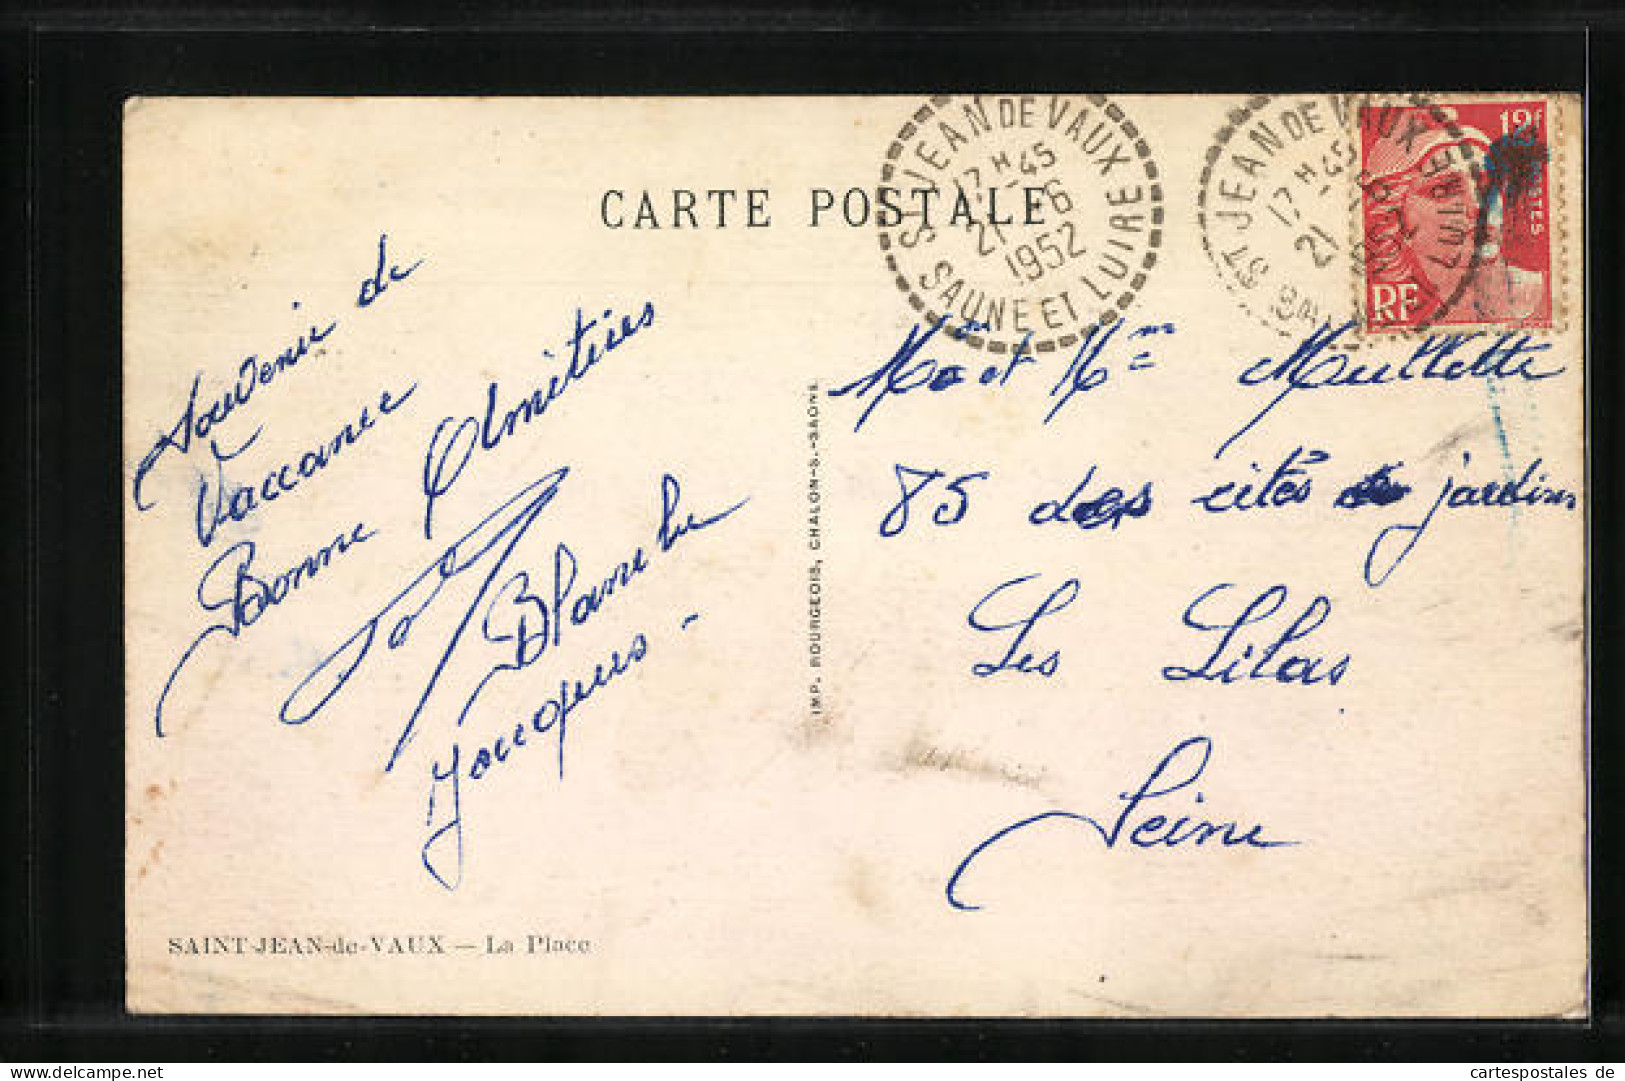 CARTE POSTALE
ST JEAN DE VAUX
17 H 45
21 -6
1952
SAONE ET LOIRE
ST JEAN DE VAUX
17 H 45
21
LOIRE
12f
POSTES
RF
Souvenir de
Vaccance
Bonne Amitiées
Blanche
Jacques -
Mr et Mme Mullette
85 des cités jardins
Les Lilas
Seine
IMP. BOURGEOIS, CHALON-S.-SAONE
SAINT-JEAN-de-VAUX — La Place
cartespostales de